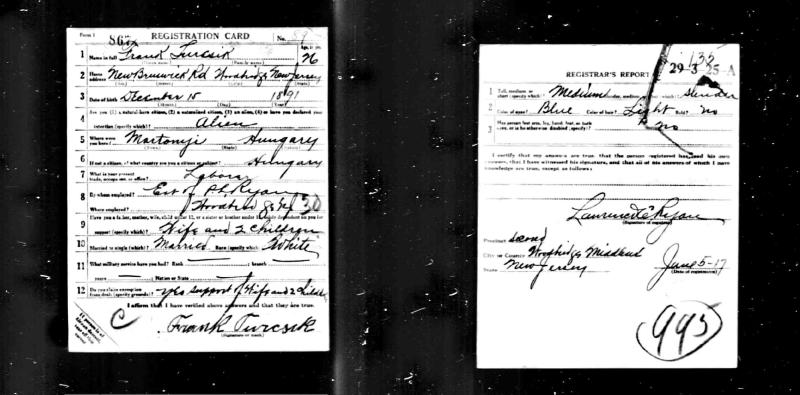 Form 1 REGISTRATION CARD No.
1 Name in full Frank Turcsik Age, in yrs. 26
(Given name) (Family name)
2 Home address New Brunswick Rd Woodbridge New Jersey
(No.) (Street) (City) (State)
3 Date of birth December 15 1891
(Month) (Day) (Year)
Are you (1) a natural-born citizen, (2) a naturalized citizen, (3) an alien, (4) or have you declared your
4 intention (specify which)? Alien
5 Where were you born? Martonyi Hungary
(Town) (State)
6 If not a citizen, of what country are you a citizen or subject? Hungary
7 What is your present trade, occupation, or office? Labor
8 By whom employed? Est of P.L. Ryan
Where employed? Woodbridge 30
Have you a father, mother, wife, child under 12, or a sister or brother under 12, solely dependent on you for
9 support (specify which)? Wife and 2 children
10 Married or single (which)? Married Race (specify which)? White
11 What military service have you had? Rank ; branch
years ; Nation or State
12 Do you claim exemption from draft (specify grounds)? yes support of wife and 2 child
I affirm that I have verified above answers and that they are true.
C Frank Turcsik
(Signature or mark)
135
REGISTRAR'S REPORT 29-3-25-A
1 Tall, medium, or short (specify which)? Medium Slender, medium, or stout (which)? slender
2 Color of eyes? Blue Color of hair? Light Bald? no
3 Has person lost arm, leg, hand, foot, or both eyes, or is he otherwise disabled (specify)? no
I certify that my answers are true, that the person registered has read his own
answers, that I have witnessed his signature, and that all of his answers of which I have
knowledge are true, except as follows:
Lawrence C Ryan
(Signature of registrar)
Precinct second
City or County Woodbridge Middlesex
State New Jersey June 5-17
(Date of registration)
993